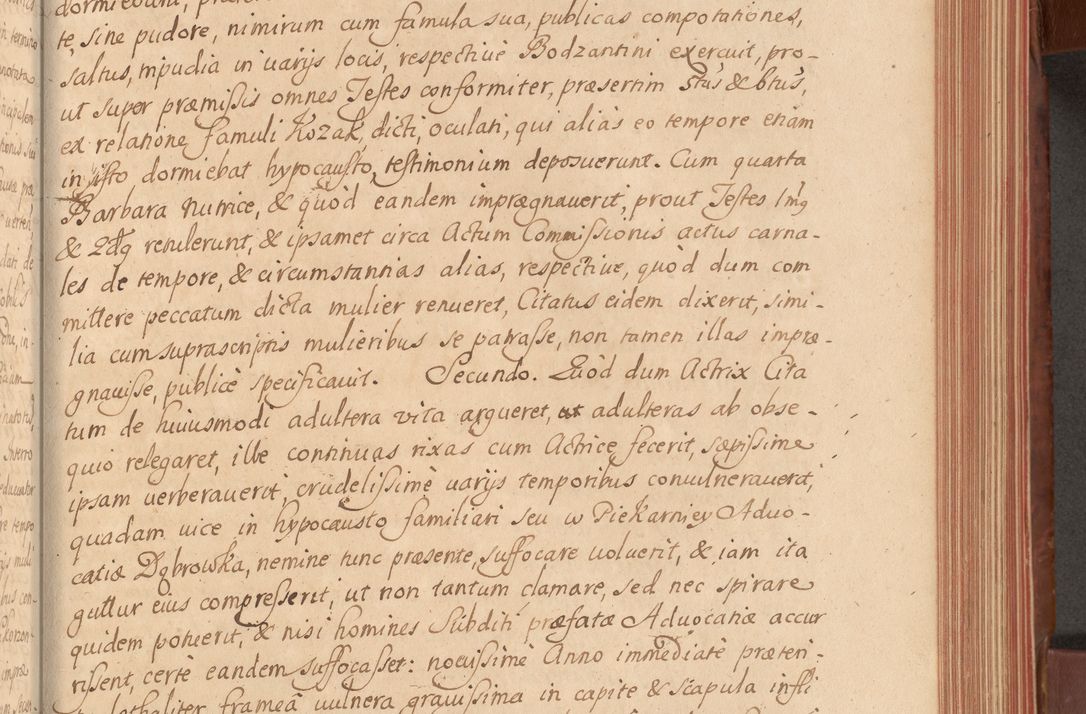 te, sine pudore, nimirum cum famula sua, publicas compotationes,
saltus, tripudia in varijs locis, respectivè Bodzantini exercuit, pro-
ut super præmissis omnes Testes conformiter, præsertim 5tus & 6tus,
ex relatione famuli Kozak, dicti, oculati, qui alias eo tempore etiam
in isto dormiebat hypocausto, testimonium deposuerunt. Cum quarta
Barbara nutrice, & quòd eandem imprægnaverit, prout Testes 1mg
& 2dg retulerunt, & ipsamet circa Actum Commissionis actus carna-
les de tempore, & circumstantias alias, respectivè, quòd dum com
mittere peccatum dicta mulier renueret, Citatus eidem dixerit, simi-
lia cum suprascriptis mulieribus se patrasse, non tamen illas impræ-
gnavisse, publicè specificavit. Secundo. Quòd dum Actrix Cita
tum de huiusmodi adultera vita argueret, ut adulteras ab obse-
quio relegaret, ille continuas rixas cum Actrice fecerit, sæpissime
ipsam verberaverit, crudelissimè varijs temporibus convulneraverit,
quadam vice in hypocausto familiari seu w Piekarniey Advo-
catiæ Dąbrowka, nemine tunc præsente, suffocare voluerit, & iam ita
guttur eius compresserit, ut non tantum clamare, sed nec spirare
quidem potuerit, & nisi homines Subditi præfatæ Advocatiæ accur
rissent, certè eandem suffocasset: novissimè Anno immediatè præteri-
lethaliter frameâ vulnera gravissima in capite & scapula infli